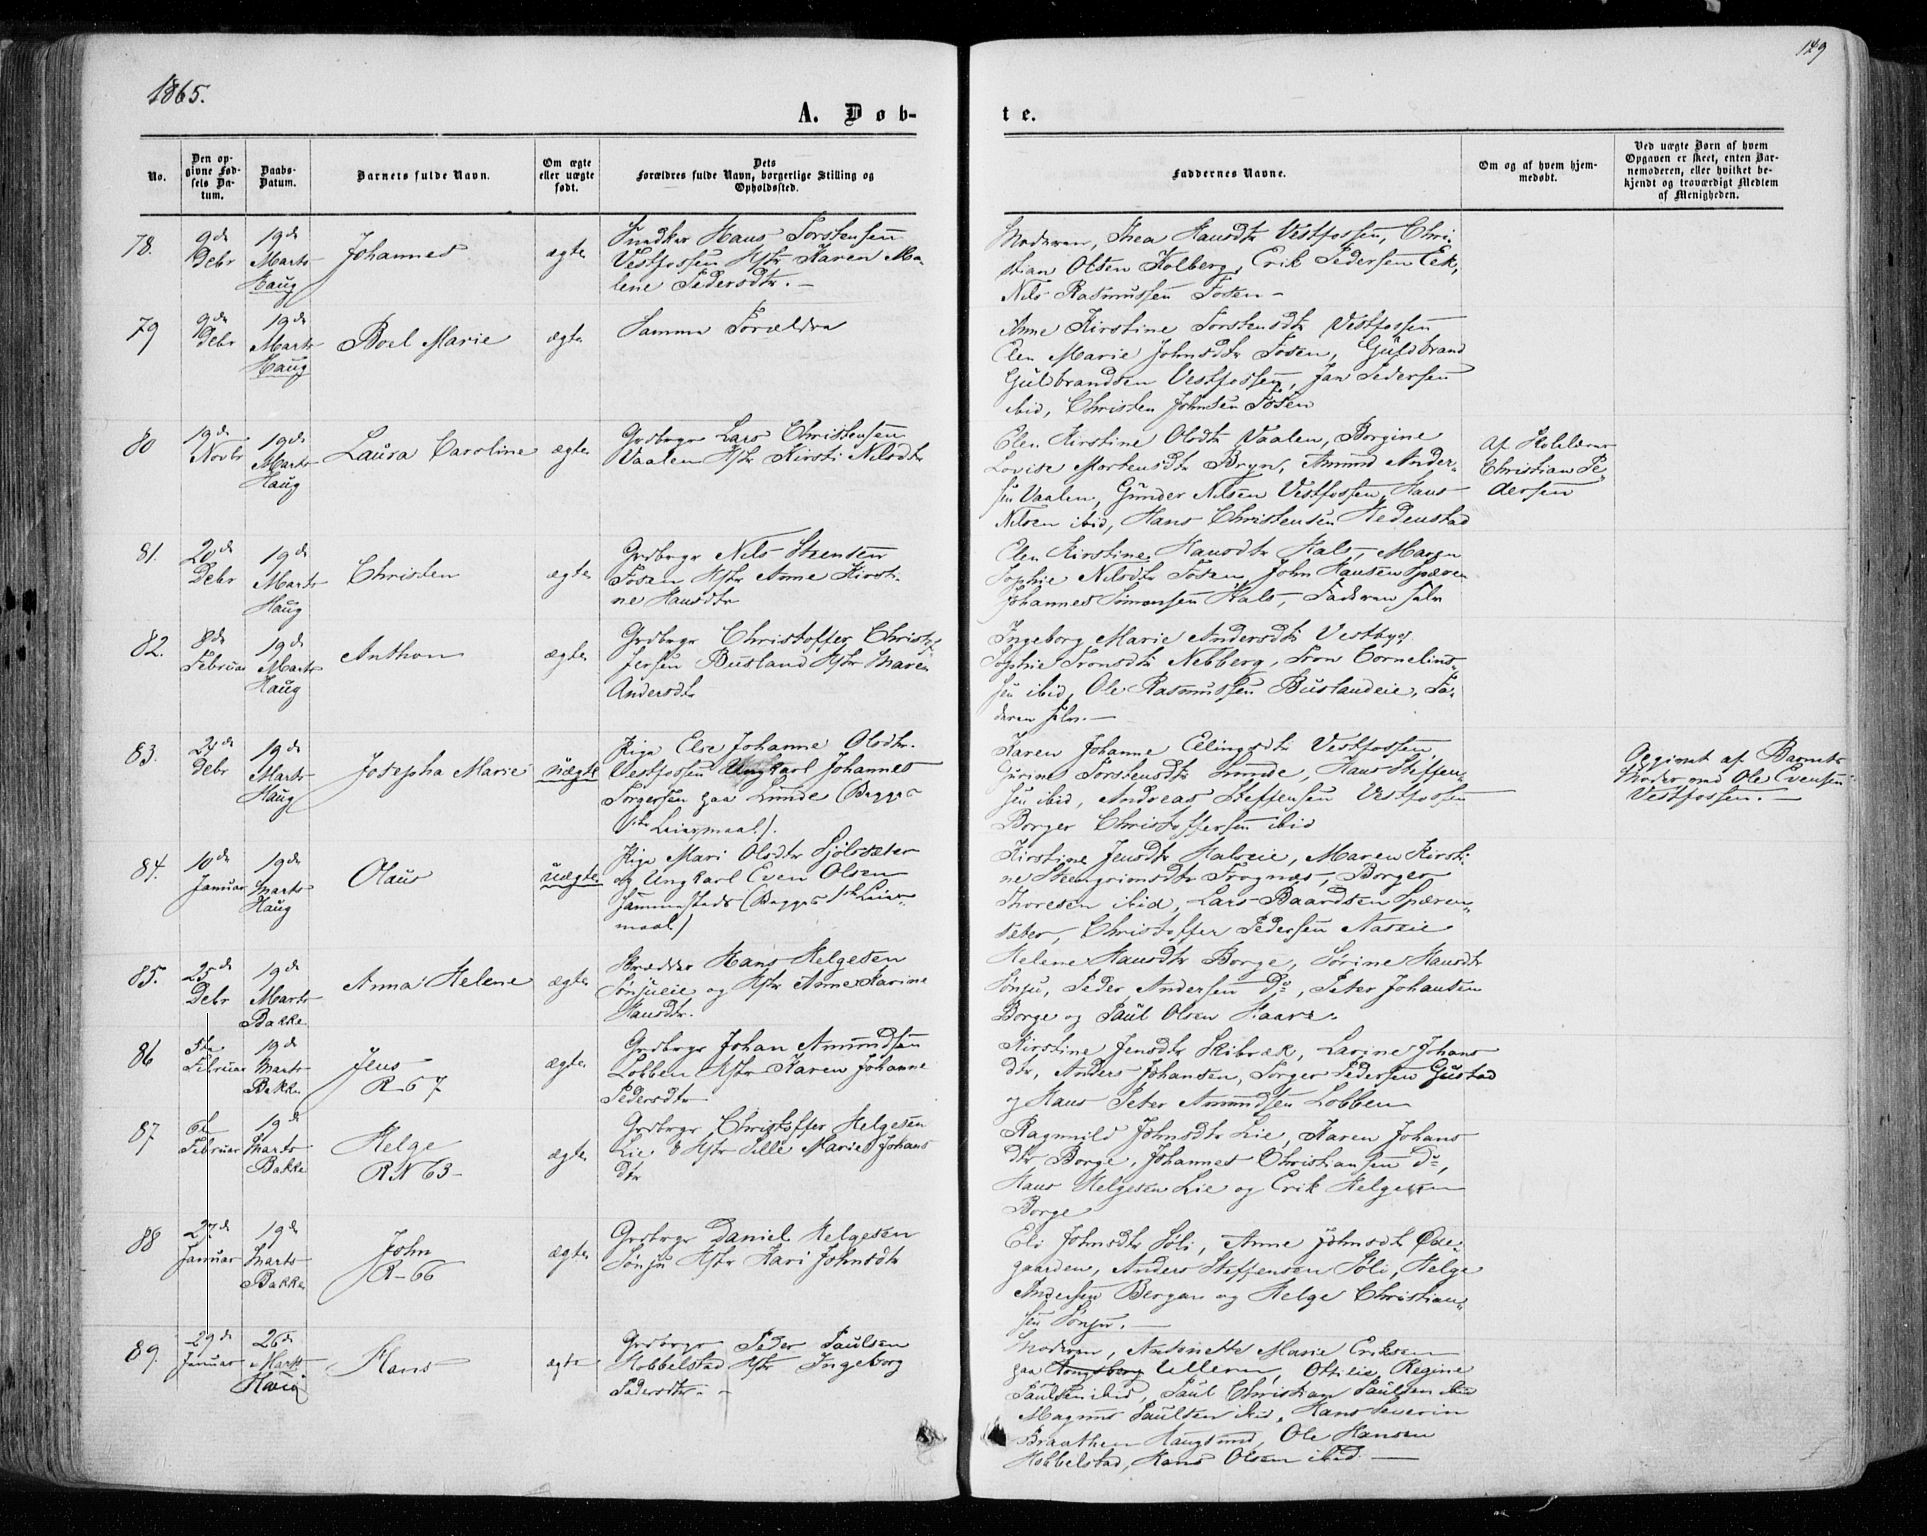 1865.
149
A. Døb-
te.
No.
Den op-
givne Fød-
sels Da-
tum.
Daabs-
Datum.
Barnets fulde Navn.
Om ægte
eller uægte
født.
Dets
Forældres fulde Navn, borgerlige Stilling og
Opholdssted.
Faddernes Navne.
Om og af hvem hjem-
medøbt.
Ved uægte Børn af hvem
Opgaven er skeet, enten Bar-
nemoderen, eller hvilket be-
kjendt og troværdigt Medlem
af Menigheden.
78.
9de
Debr
19de
Marts
Haug
Johannes
ægte
Snedker Hans Torstensen
Vestfossen Hstr Karen Ma-
lene Pedersdtr. -
Moderen, Thea Hansdtr Vestfossen, Chri-
stian Olsen Kolberg, Erik Pedersen Eek,
Nils Rasmussen Fosen -
79
9de
Debr
19de
Marts
Haug
Boel Marie
ægte
Samme Forældre
Anne Kirstine Torstensdtr Vestfossen
Elen Marie Johnsdtr Fosen, Guldbrand
Gulbrandsen Vestfossen, Jan Pedersen
ibid, Christen Johnsen Fosen
80
19de
Novbr
19de
Marts
Haug
Laura Caroline
ægte
Grdbrgr Lars Christensen
Vaalen Hstr Kirsti Nilsdtr
Elen Kirstine Olsdtr Vaalen, Borgine
Lovise Mortensdtr Bryn, Amund Ander-
sen Vaalen, Gunder Nilsen Vestfossen, Hans
Nilsen ibid, Hans Christensen Hedenstad
Af Skolelærer
Christian Pe-
dersen
81.
20de
Debr
19de
Marts
Haug
Christen
ægte
Grdbrgr Nils Steensen
Fosen Hstr Anne Kirsti-
ne Hansdtr
Elen Kirstine Hansdtr Hals, Maren
Sophie Nilsdtr Fosen, John Hansen Spæren
Johannes Simonsen Hals, Faderen selv
82.
8de
Februar
19de
Marts
Haug
Anthon
ægte
Grdbrgr Christoffer Christof-
fersen Busland Hstr Maren
Andersdtr
Ingeborg Marie Andersdtr Vestbye,
Sophie Tronsdtr Nebberg, Tron Cornelius-
sen ibid, Ole Rasmussen Buslandeie, Fa-
deren selv. -
83.
24de
Debr
19de
Marts
Haug
Josepha Marie
uægte
Pige Else Johanne Olsdtr.
Vestfossen Ungkarl Johannes
Torgersen paa Lunde (Begges
1ste Leiermaal).
Karen Johanne Ellingsdtr Vestfossen
Gurine Torstensdtr Lunde, Hans Steffen-
sen ibid, Andreas Steffensen Vestfossen
Borger Christoffersen ibid
Opgivet af Barnets
Moder med Ole Evensen
Vestfossen. -
84.
10de
Januar
19de
Marts
Haug
Olaus
uægte
Pige Mari Olsdtr Sjølsæter
og Ungkarl Even Olsen
Hammestads (Begges 1ste Leier-
maal)
Kirstine Jensdtr Halseie, Maren Kirsti-
ne Steengrimsdtr Frognæs, Borger
Thoresen ibid, Lars Baardsen Spæren-
sæter, Christoffer Pedersen Aaseie
85.
25de
Debr
19de
Marts
Bakke
Anna Helene
ægte
Skrædder Hans Helgesen
Sønjueie og Hstr Anne Karine
Hansdtr.
Helene Hansdtr Borge, Sørine Hansdtr
Sønju, Peder Andersen Do, Peter Johansen
Borge og Paul Olsen Haare.
86
5te
Februar
19de
Marts
Bakke
Jens
R-67
ægte
Grdbrgr Johan Amundsen
Lobben Hstr Karen Johanne
Pedersdtr
Kirstine Jensdtr Skibræk, Lavine Johans
dtr, Anders Johansen, Torger Pedersen Gustad
og Hans Peter Amundsen Lobben
87.
6te
Februar
19de
Marts
Bakke
Helge
R N 63-
ægte
Grdbrgr Christoffer Helgesen
Lie & Hstr Sille Marie Johans
dtr
Ragnhild Johnsdtr Lie, Karen Johans
dtr Borge, Johannes Christiansen Do,
Hans Helgesen Lie og Erik Helgesen
Borge
88
27de
Januar
19de
Marts
Bakke
John
R-66
ægte
Grdbrgr Daniel Helgesen
Sønju Hstr Kari Johnsdtr
Eli Johnsdtr Søli, Anne Johnsdtr Øde-
gaarden, Anders Steffensen Søli, Helge
Andersen Bergan og Helge Christian-
sen Sønju. -
89.
29de
Januar
26de
Marts
Haug
Hans
ægte
Grdbrgr Peder Paulsen
Hobbelstad Hstr Ingeborg
Pedersdtr. -
Moderen, Antonette Marie Eriksen
paa Kongsberg Ulleren, Ottilie Regine
Paulsen ibid, Paul Christian Paulsen ibid
Magnus Paulsen ibid, Hans Severin
Braathen Haugsund, Ole Hansen
Hobbelstad, Hans Olsen ibid -